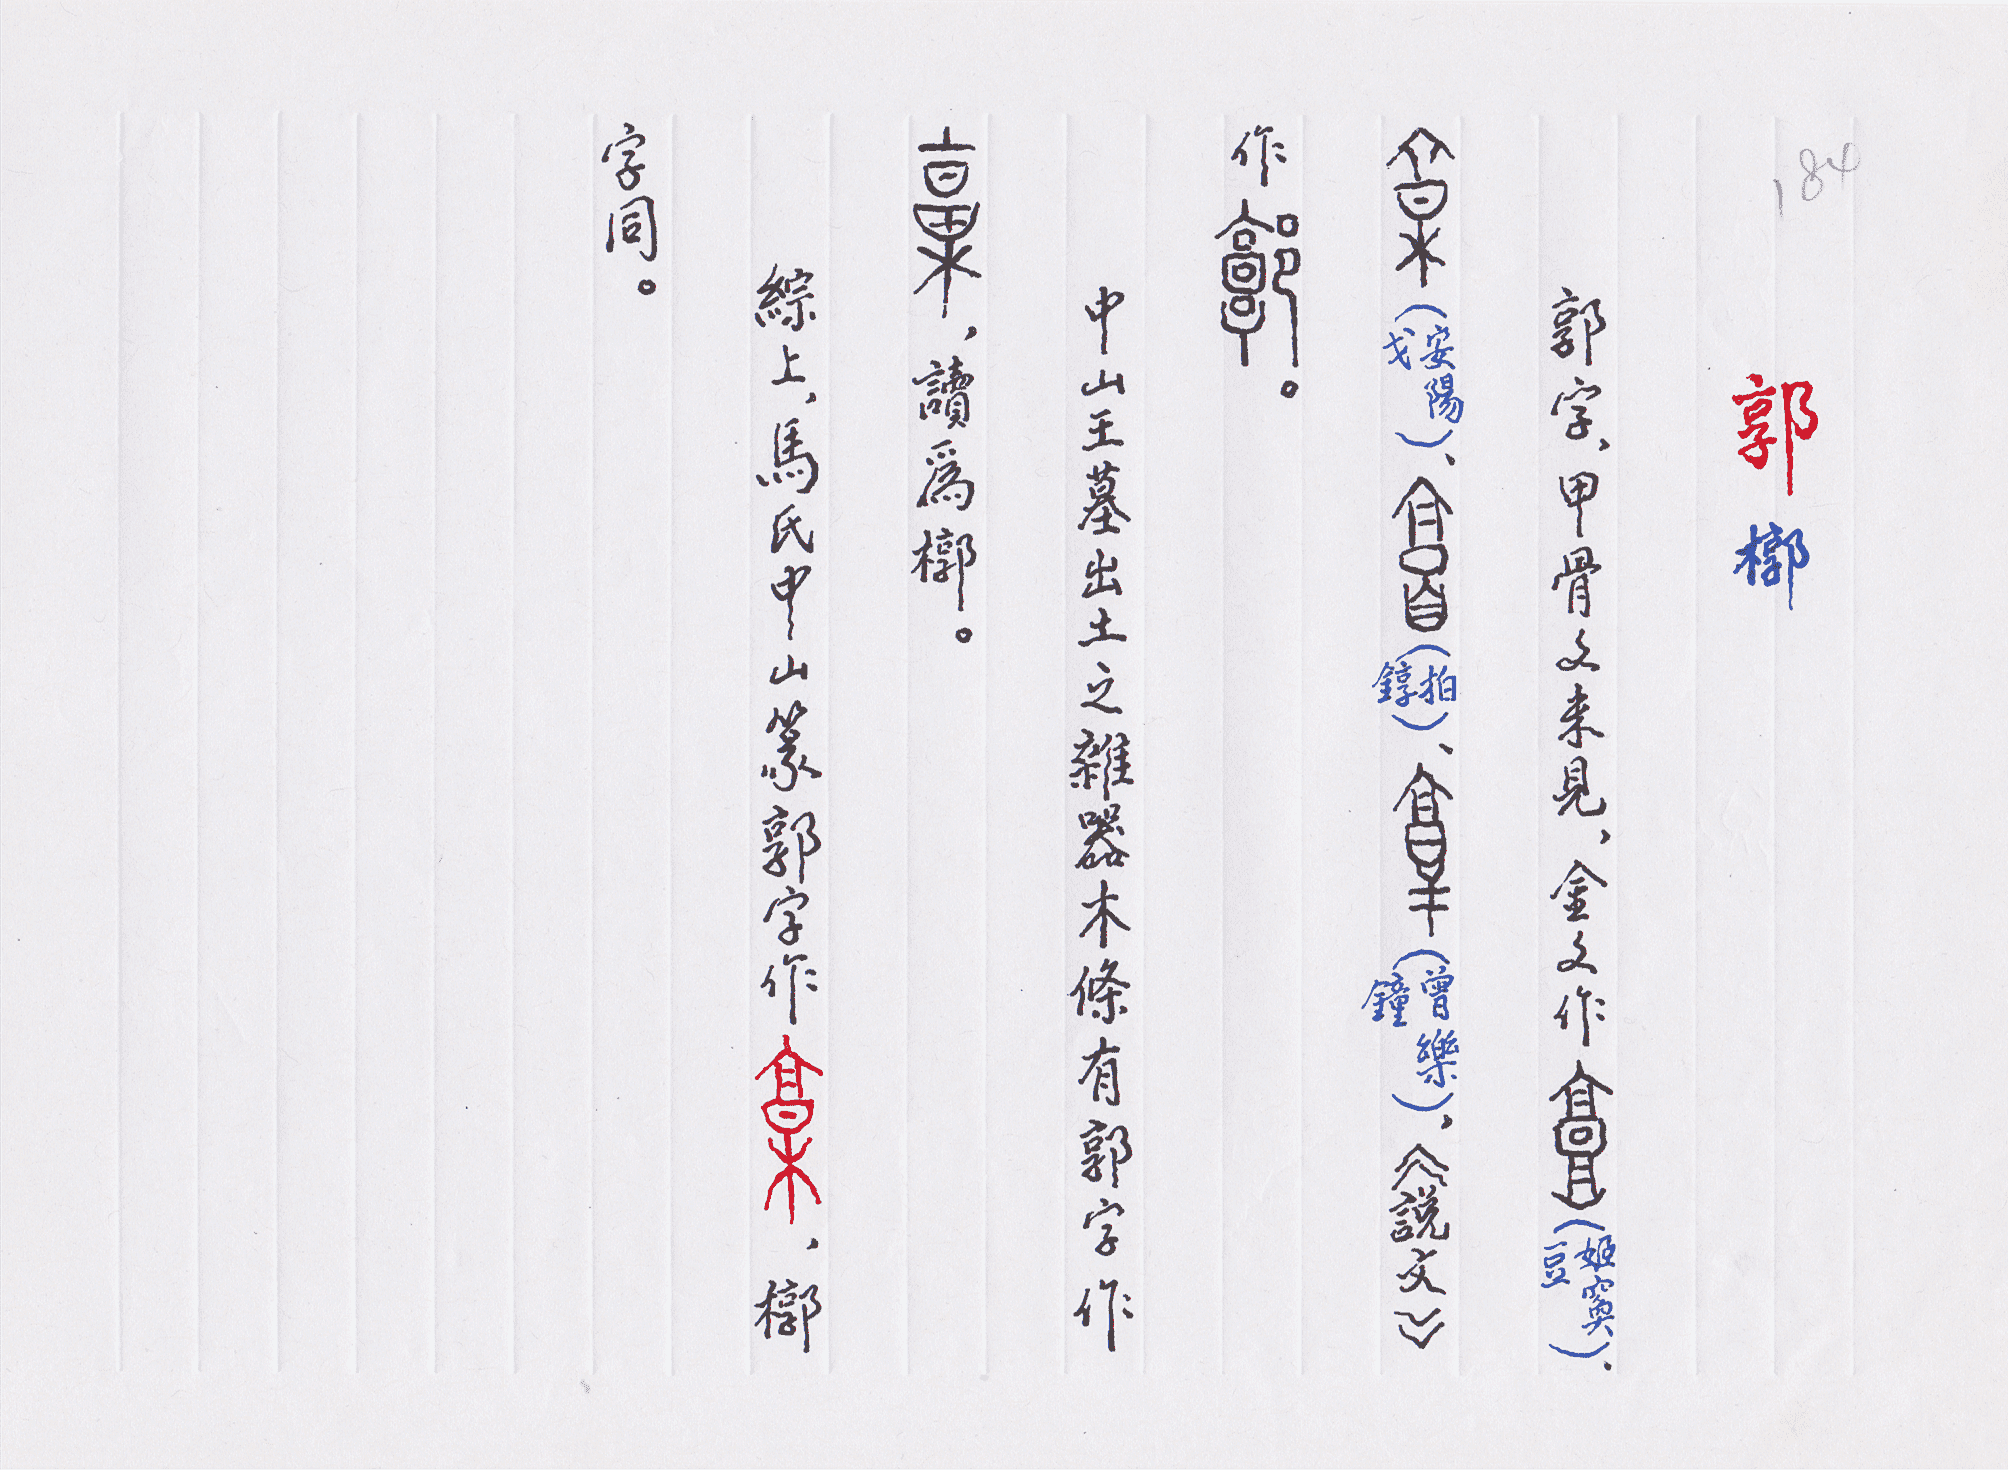 184
郭 槨
郭字、甲骨文未見，金文作（姬窶豆）、
（安陽戈）、（拍錞）、（曾樂鐘），《説文》
作。
中山王墓出土之雜器木條有郭字作
，讀爲槨。
綜上，馬氏中山篆郭字作，槨
字同。